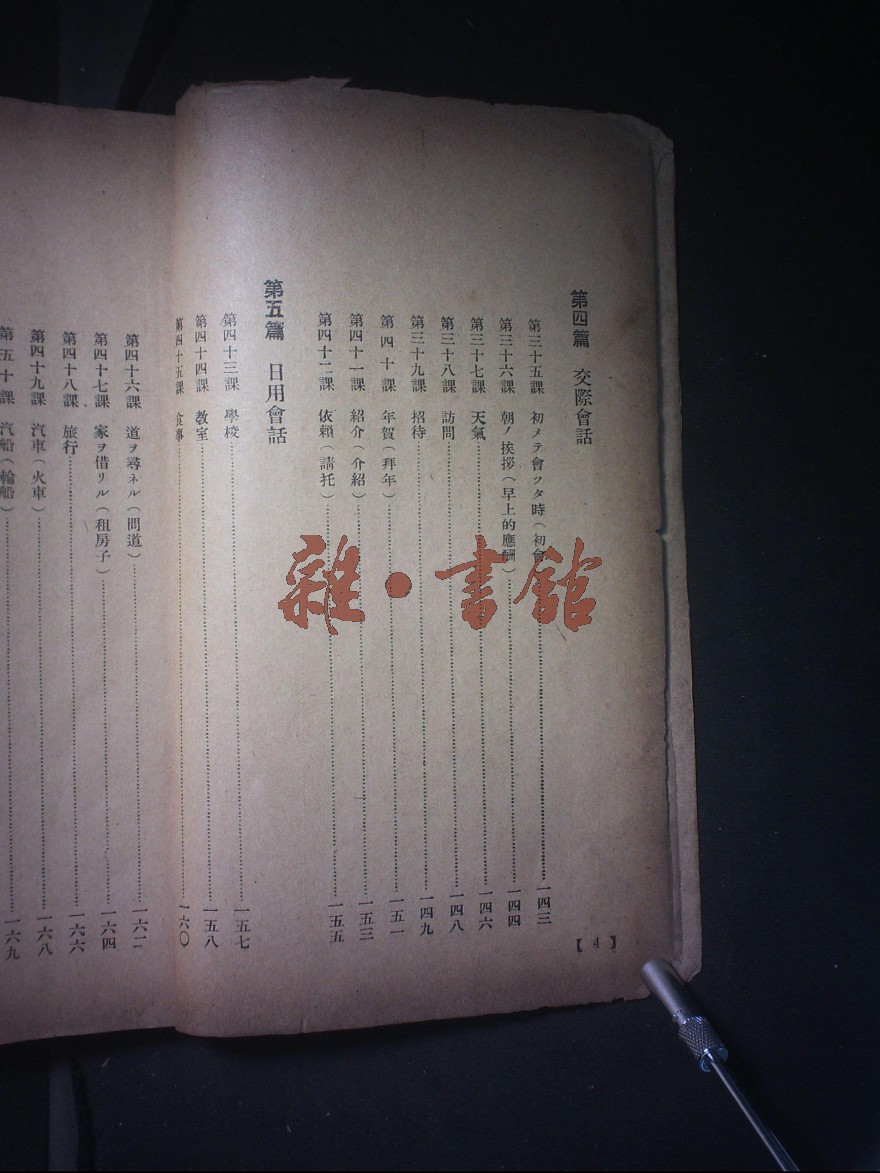 第四篇 交際會話
第三十五課 初メテ會ツタ時(初會 一四三
第三十六課 朝ノ挨拶(早上的應酬) 一四四
第三十七課 天氣 一四六
第三十八課 訪問 一四八
第三十九課 招待 一四九
第四十課 年賀(拜年) 一五一
第四十一課 紹介(介紹) 一五三
第四十二課 依賴(請托) 一五五
第五篇 日用會話
第四十三課 學校 一五七
第四十四課 教室 一五八
第四十五課 食事 一六〇
第四十六課 道ヲ尋ネル(問道) 一六二
第四十七課 家ヲ借リル(租房子) 一六四
第四十八課 旅行 一六六
第四十九課 汽車(火車) 一六八
第五十課 汽船(輪船) 一六九
【4】
雜・書館